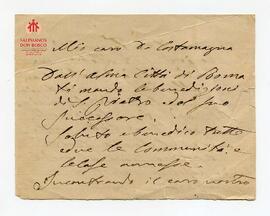 SALESIANOS
DON BOSCO
Mio caro D. Costamagna
Dall'alma Città di Roma
ti mando le benedizioni
di S. Pietro e del suo
successore.
Saluto e benedico tutte
le Comunità e
le case annesse.
Incontrando il caro nostro